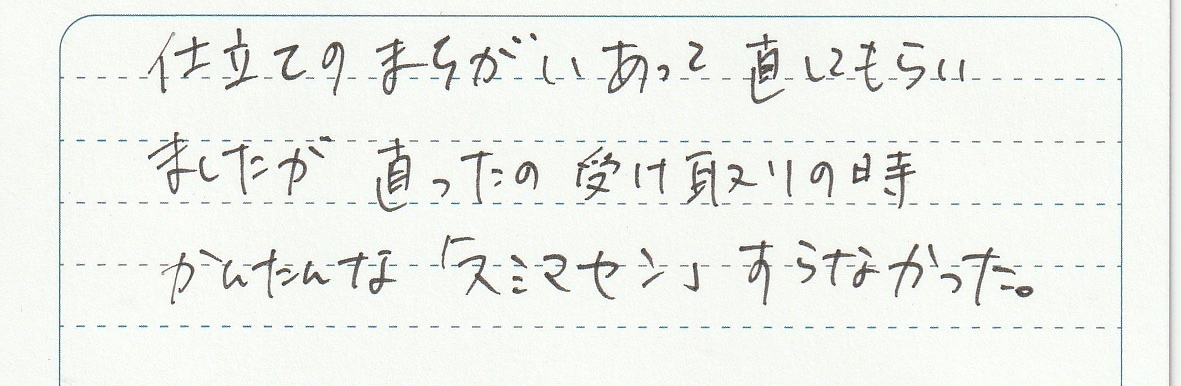 仕立ての まちがい あって 直してもらい
ましたが 直ったの 受け取りの時
かんたんな 「スミマセン」 すらなかった。